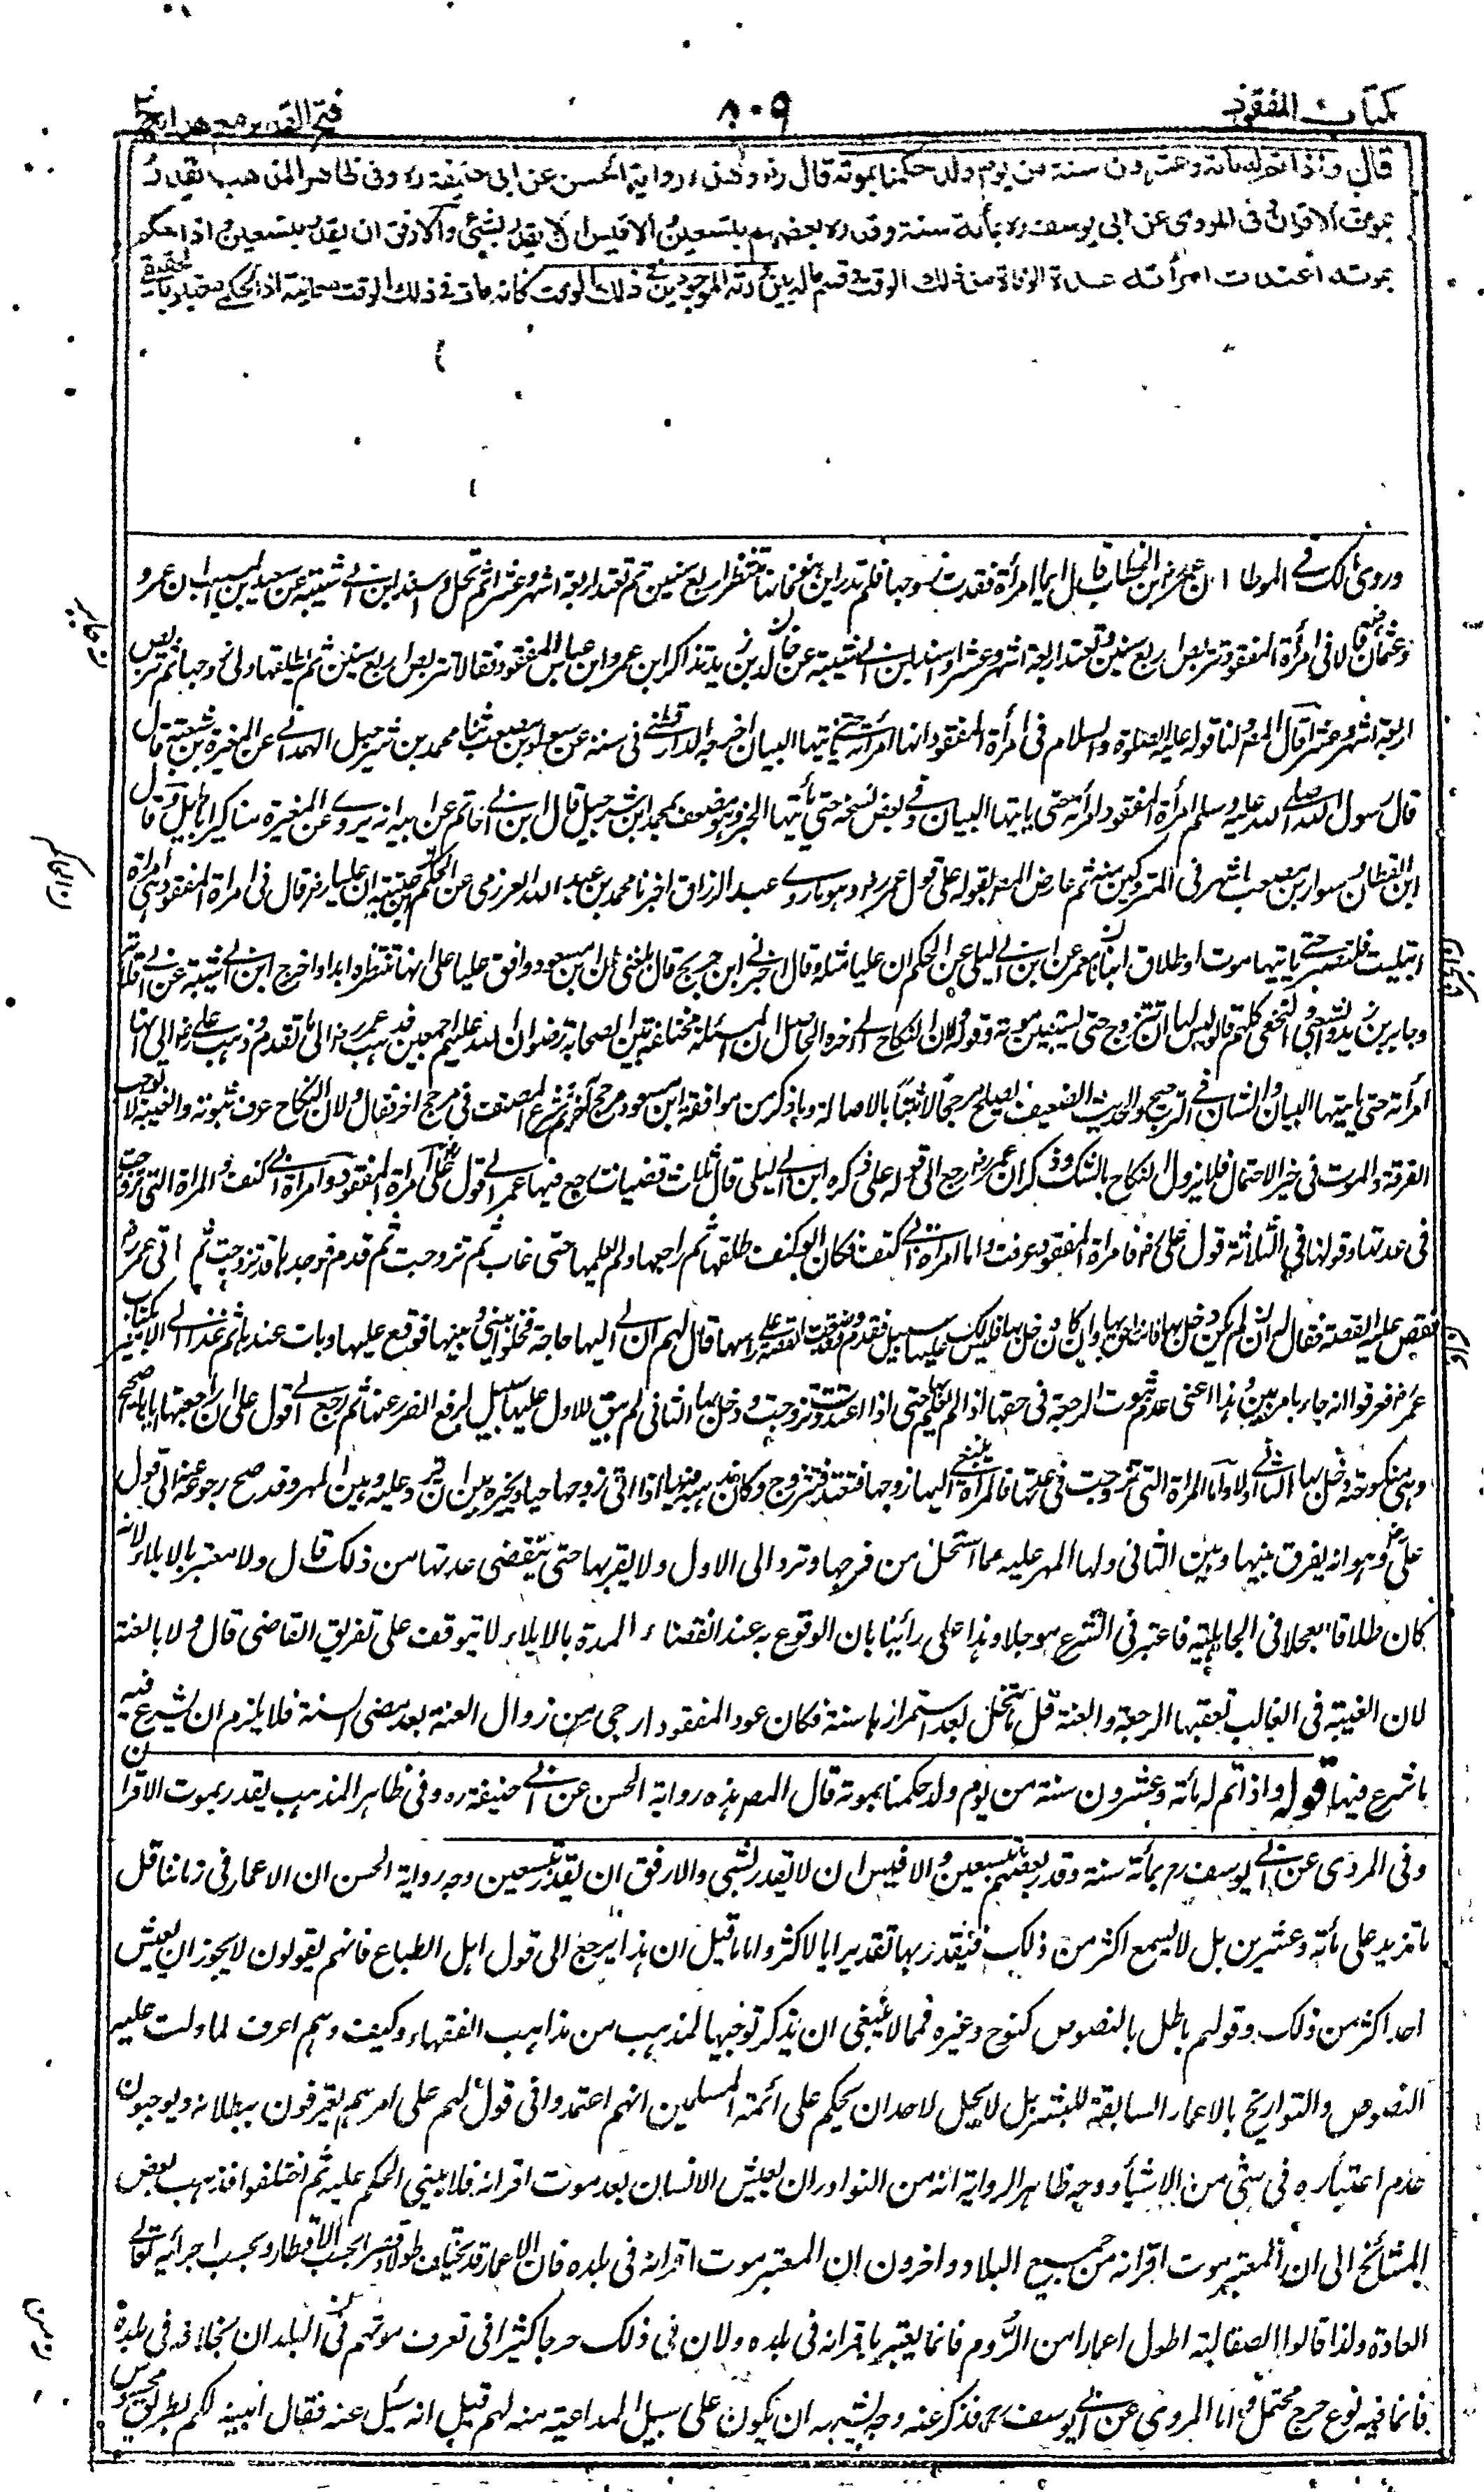 كتاب المفقود
٨٠٩
فتح القدير مع هداية ج ٢
قال واذا تم له مائة وعشرون سنة من يوم ولد حكمنا بموته قال رضه وهذه رواية الحسن عن ابي حنيفة ره وفي ظاهر المذهب يقدر
بموت الاقران وفي المروى عن ابي يوسف ره بمائة سنة وقدره بعضهم بتسعين والاقيس ان لا يقدر بشئ والارفق ان يقدر بتسعين واذا حكم
بموته اعتدت امرأته عدة الوفاة من ذلك الوقت وقسم ماله بين ورثته الموجودين في ذلك الوقت كانه مات في ذلك الوقت معاينة اذ الحكمي معتبر بالحقيقي
وروى مالك في الموطا ان عمر بن الخطاب قال ايما امرأة فقدت زوجها فلم تدر اين هو فانها تنتظر اربع سنين ثم تعتد اربعة اشهر وعشرا ثم تحل واسند ابن ابي شيبة عن سعيد بن المسيب ان عمر و
عثمان قالا في امرأة المفقود تتربص اربع سنين وتعتد اربعة اشهر وعشرا واسند ابن ابي شيبة عن جابر بن زيد تذاكر ابن عمر وابن عباس المفقود فقالا تتربص اربع سنين ثم يطلقها ولي زوجها ثم تتربص
اربعة اشهر وعشرا قال المص ولنا قوله عليه الصلوة والسلام في امرأة المفقود انها امرأته حتى ياتيها البيان اخرجه الدارقطني في سننه عن سوار بن مصعب ثنا محمد بن شرحبيل الهمداني عن المغيرة بن شعبة قال
قال رسول الله صلى الله عليه وسلم امرأة المفقود امرأته حتى ياتيها البيان وفي بعض نسخه حتى يأتيها الخبر وهو مضعف بمحمد بن شرحبيل قال ابن ابي حاتم عن ابيه انه يروى عن المغيرة مناكير اباطيل وقال
ابن القطان وسوار بن مصعب اشهر في المتروكين منه ثم عارض المص بقوله على قول عمر رضه وهو ما روى عبد الرزاق اخبرنا محمد بن عبيد الله العرزمي عن الحكم بن عتيبة ان عليا رضه قال في امراة المفقود هي امراة
ابتليت فلتصبر حتى ياتيها موت او طلاق انبأنا معمر عن ابن ابي ليلى عن الحكم ان عليا مثله وقال اخبرني ابن جريج قال بلغني ان ابن مسعود وافق عليا على انها تنتظره ابدا واخرج ابن ابي شيبة عن ابي قلابة
وجابر بن زيد والشعبي والنخعي كلهم قالوا ليس لها ان تتزوج حتى يستبين موته وقوله ولان النكاح الى اخره الحاصل ان المسئلة مختلفة بين الصحابة رضوان الله عليهم اجمعين فذهب عمر رضه الى ما تقدم وذهب على رضه الى انها
امرأته حتى ياتيها البيان والشان في الترجيح والحديث الضعيف يصلح مرجحا لا مثبتا بالاصالة وما ذكر من موافقة ابن مسعود مرجح اخر ثم شرع المصنف في مرجح اخر فقال ولان النكاح عرف ثبوته والغيبة لا توجب
الفرقة والموت في حيز الاحتمال فلا يزول النكاح بالشك وذكر ان عمر رضه رجع الى قوله على ذكره ابن ابي ليلى قال ثلاث قضيات رجع فيها عمر الى قول على امرأة المفقود وامرأة ابي كنف والمرأة التي تزوجت
في عدتها وقولنا في الثلاثة قول على رضه فامراة المفقود عرفت واما امرأة ابي كنف فكان ابو كنف طلقها ثم راجعها ولم يعلمها حتى غاب ثم تزوجت ثم قدم فوجدها قد تزوجت ثم اتى عمر رضه
فقص عليه القصة فقال له ان لم يكن دخل بها فانت احق بها وان كان دخل بها فليس لك عليها سبيل فقدم وقد وضعت القصة على راسها فقال لهم ان لي اليها حاجة فخلوا بيني وبينها فوقع عليها وبات عندها ثم غدا الى الامير بكتاب
عمر رضه فعرفوا انه جاء بامر بين وهذا اعني عدم ثبوت الرجعة في حقها اذا لم تعلم بها حتى اذا اعتدت وتزوجت ودخل بها الثاني لم يبق للاول عليها سبيل لرفع الضرر عنها ثم رجع الى قول على ان رجعتها اياها صحيح
وهي منكوحته دخل بها الثاني اولا واما المرأة التي تزوجت في عدتها فالمرأة ينعى اليها زوجها فتعتد فتتزوج وكان مذهبه فيها اذا اتى زوجها حيا ويخيره بين ان ترد عليه وبين المهر وقد صح رجوعه عنه الى قول
على رضه وهو انه يفرق بينها وبين الثاني ولها المهر عليه مما استحل من فرجها وترد الى الاول ولا يقربها حتى تنقضى عدتها من ذلك قال ولا معتبر بالايلاء لانه
كان طلاقا معجلا في الجاهلية فاعتبر في الشرع مؤجلا وهذا على رأينا بان الوقوع به عند انقضاء المدة بالايلاء لا يتوقف على تفريق القاضي قال ولا بالعنة
لان الغيبة في الغالب تعقبها الرجعة والعنة قل ما تنحل بعد استمرارها سنة فكان عود المفقود ارجى من زوال العنة بعد مضى السنة فلا يلزم ان يشرع فيه
ما شرع فيها قوله واذا تم له مائة وعشرون سنة من يوم ولد حكمنا بموته قال المص هذه رواية الحسن عن ابي حنيفة ره وفي ظاهر المذهب يقدر بموت الاقران
وفي المروى عن ابي يوسف ره بمائة سنة وقدر بعضهم بتسعين والاقيس ان لا يقدر بشئ والارفق ان يقدر بتسعين وجه رواية الحسن ان الاعمار في زماننا قل
ما تزيد على مائة وعشرين بل لا يسمع اكثر من ذلك فيقدر بها تقديرا بالاكثر واما ما قيل ان هذا يرجع الى قول اهل الطباع فانهم يقولون لا يجوز ان يعيش
احد اكثر من ذلك وقولهم باطل بالنصوص كنوح وغيره فمما لا ينبغي ان يذكر توجيها لمذهب من مذاهب الفقهاء وكيف وهم اعرف لما دلت عليه
النصوص والتواريخ بالاعمار السابقة للبشر بل لا يحل لاحد ان يحكم على ائمة المسلمين انهم اعتمدوا في قول لهم على امر هم يعترفون ببطلانه ويوجبون
عدم اعتباره في شئ من الاشياء ووجه ظاهر الرواية انه من النوادر ان يعيش الانسان بعد موت اقرانه فلا يبنى الحكم عليه ثم اختلفوا فذهب بعض
المشائخ الى ان المعتبر موت اقرانه من جميع البلاد واخرون ان المعتبر موت اقرانه في بلده فان الاعمار قد تختلف طولا وقصرا بحسب الاقطار وبحسب اجرائه تعالى
العادة ولذا قالوا الصقالبة اطول اعمارا من الروم فانما يعتبر باقرانه في بلده ولان في ذلك حرجا كثيرا في تعرف موتهم في البلدان بخلافه في بلده
فانما فيه نوع حرج محتمل واما المروى عن ابي يوسف ره فذكر عنه وجه يشبه ان يكون على سبيل المداعبة منه لهم قيل انه سئل عنه فقال ابينه لكم بطريق محسوس